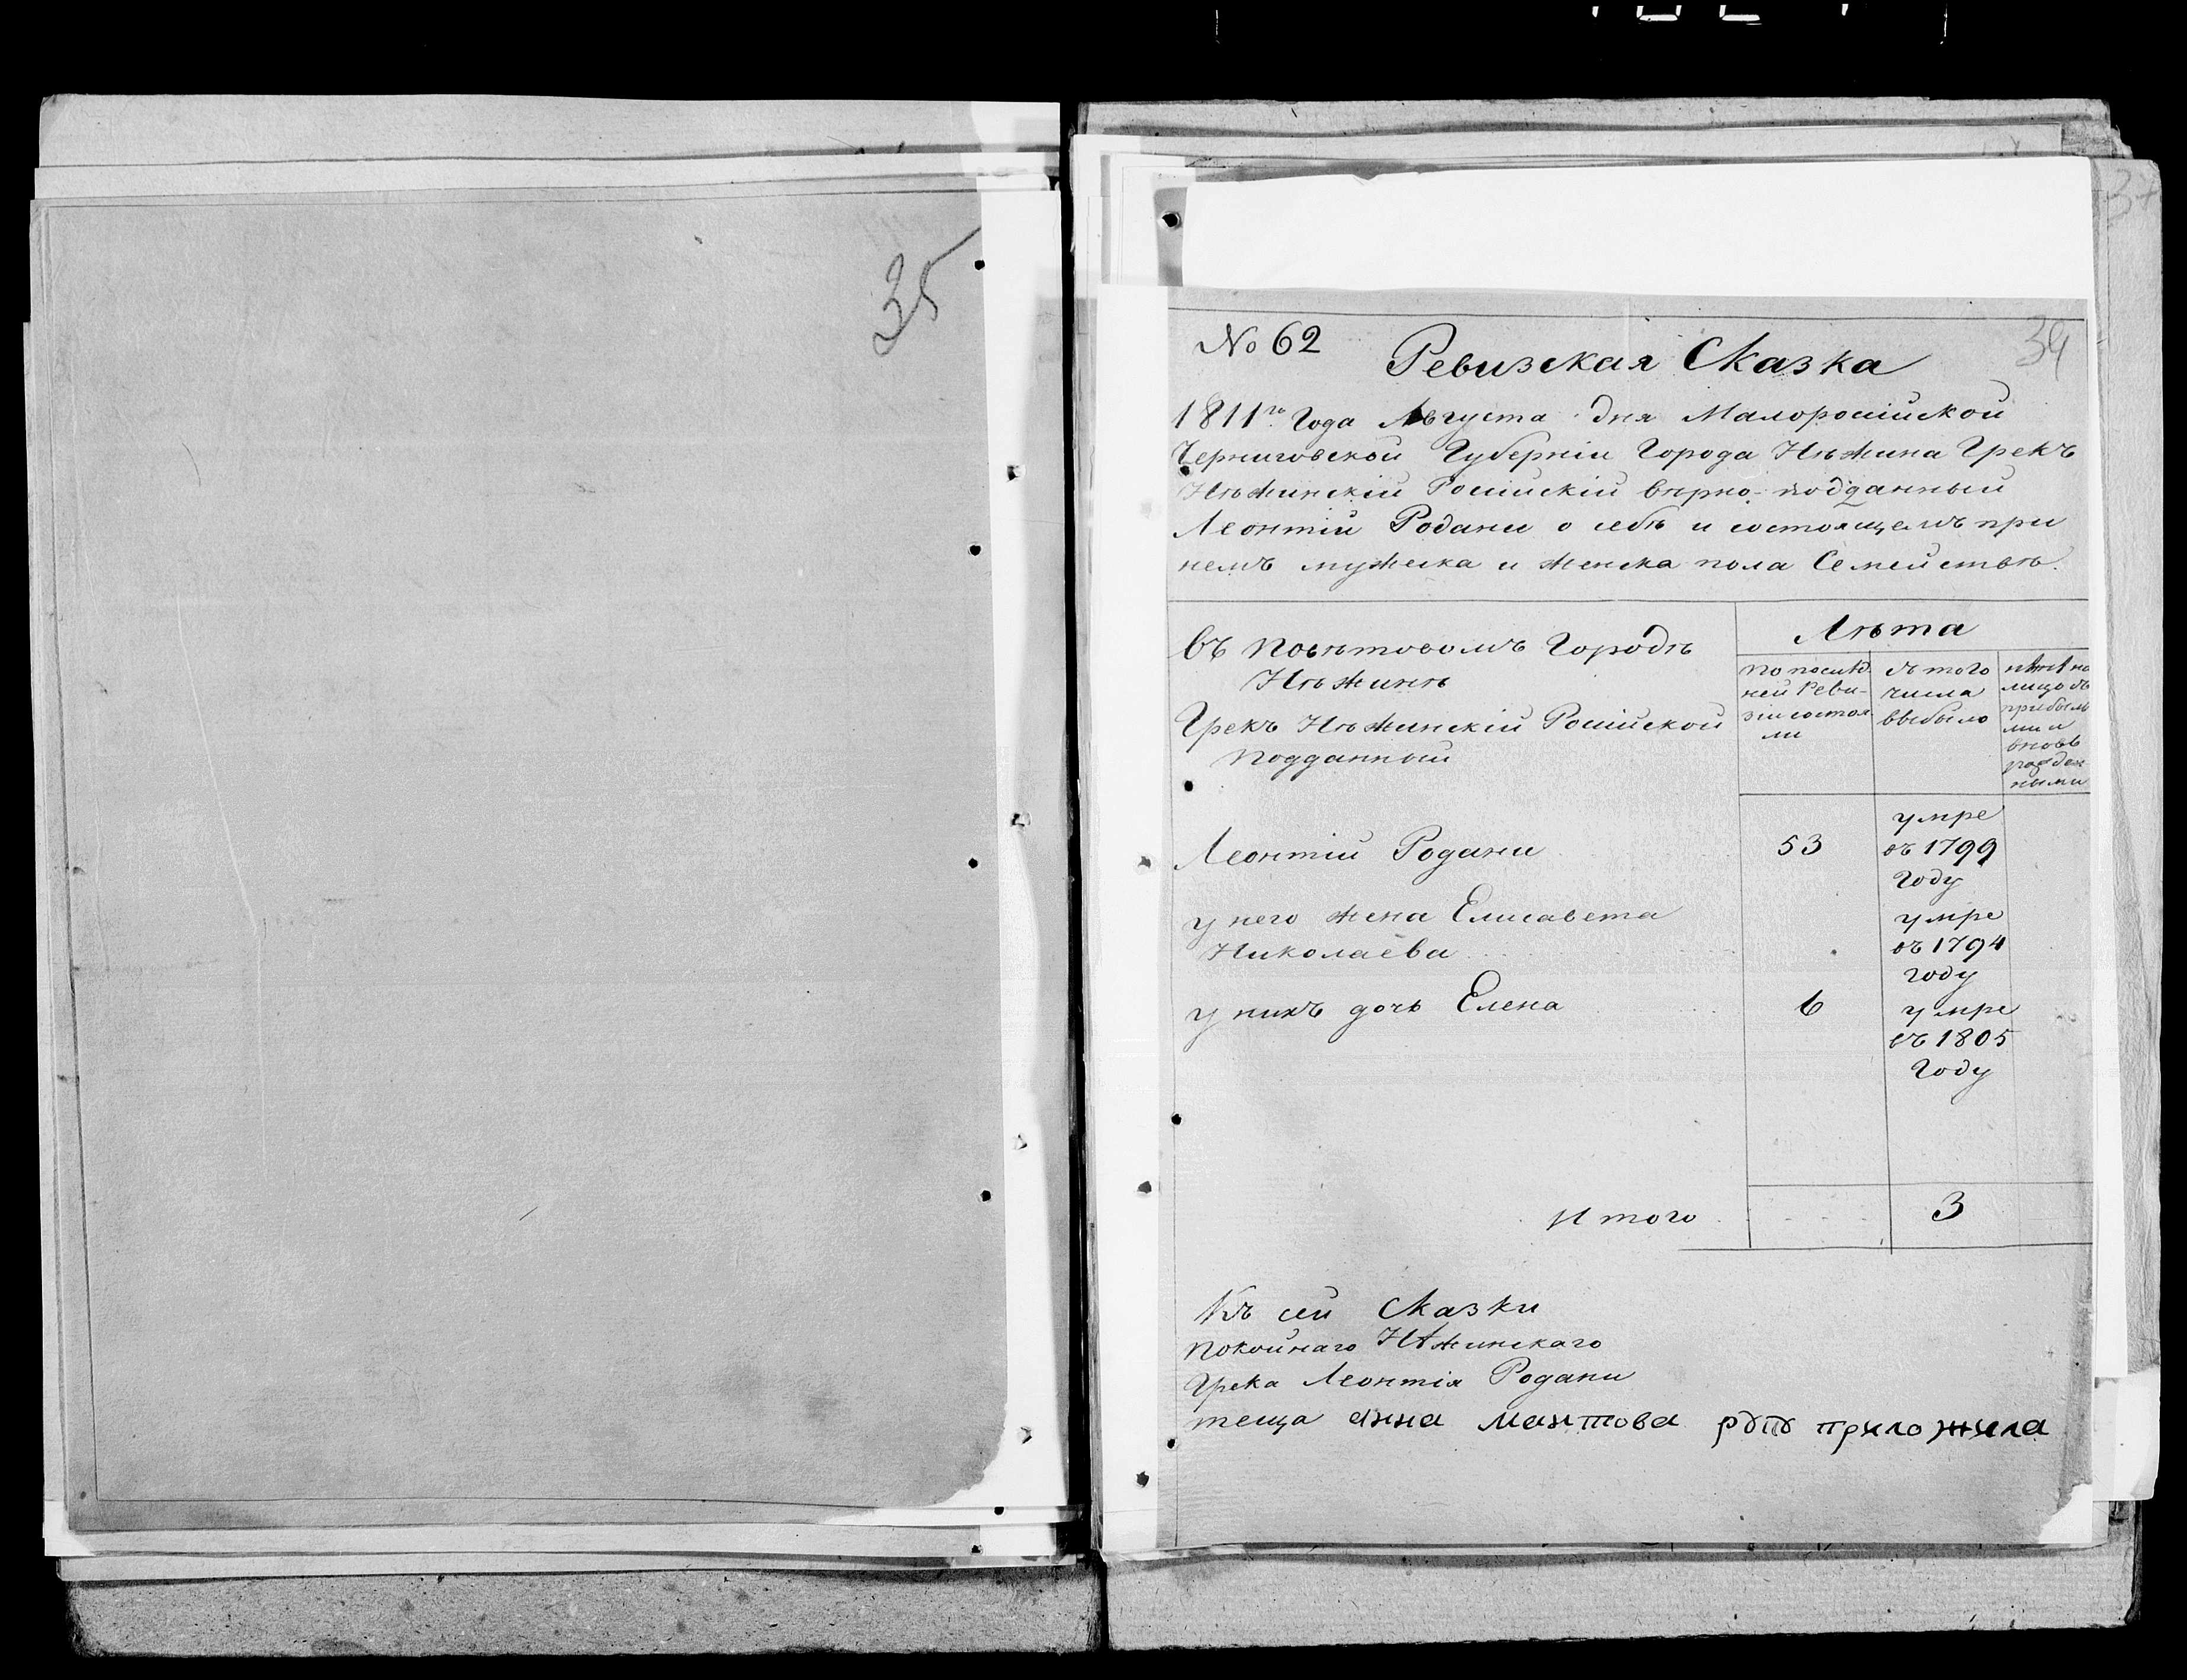 35
37
39
№ 62
Ревизская Сказка
1811го Года Августа дня Малоросийской
Черниговской Губерніи Города Нѣжина Грекъ
Нѣжинскій Росийскій вѣрно-подданный
Леонтій Родани о себѣ и состоящемъ при
немъ мужеска и женска пола Семействѣ.
Въ Повѣтовомъ Городѣ
Нѣжинѣ
Грекъ Нѣжинскій Росийской
подданный
Лѣта
по послѣд-
ней Реви-
зіи состоя
ли
съ того
числа
выбыло
нынѣ на
лицо съ
прибыль
ми и
вновь
рожден
ными
Леонтій Родани 53
умре
въ 1799
Году
у него жена Елисавета
Николаева
умре
въ 1794
году
у нихъ дочь Елена 6
умре
въ 1805
Году
Итого 3
Къ сей Сказки
покойнаго Нѣжинскаго
Грека Леонтія Родани
теща анна мантова приложила